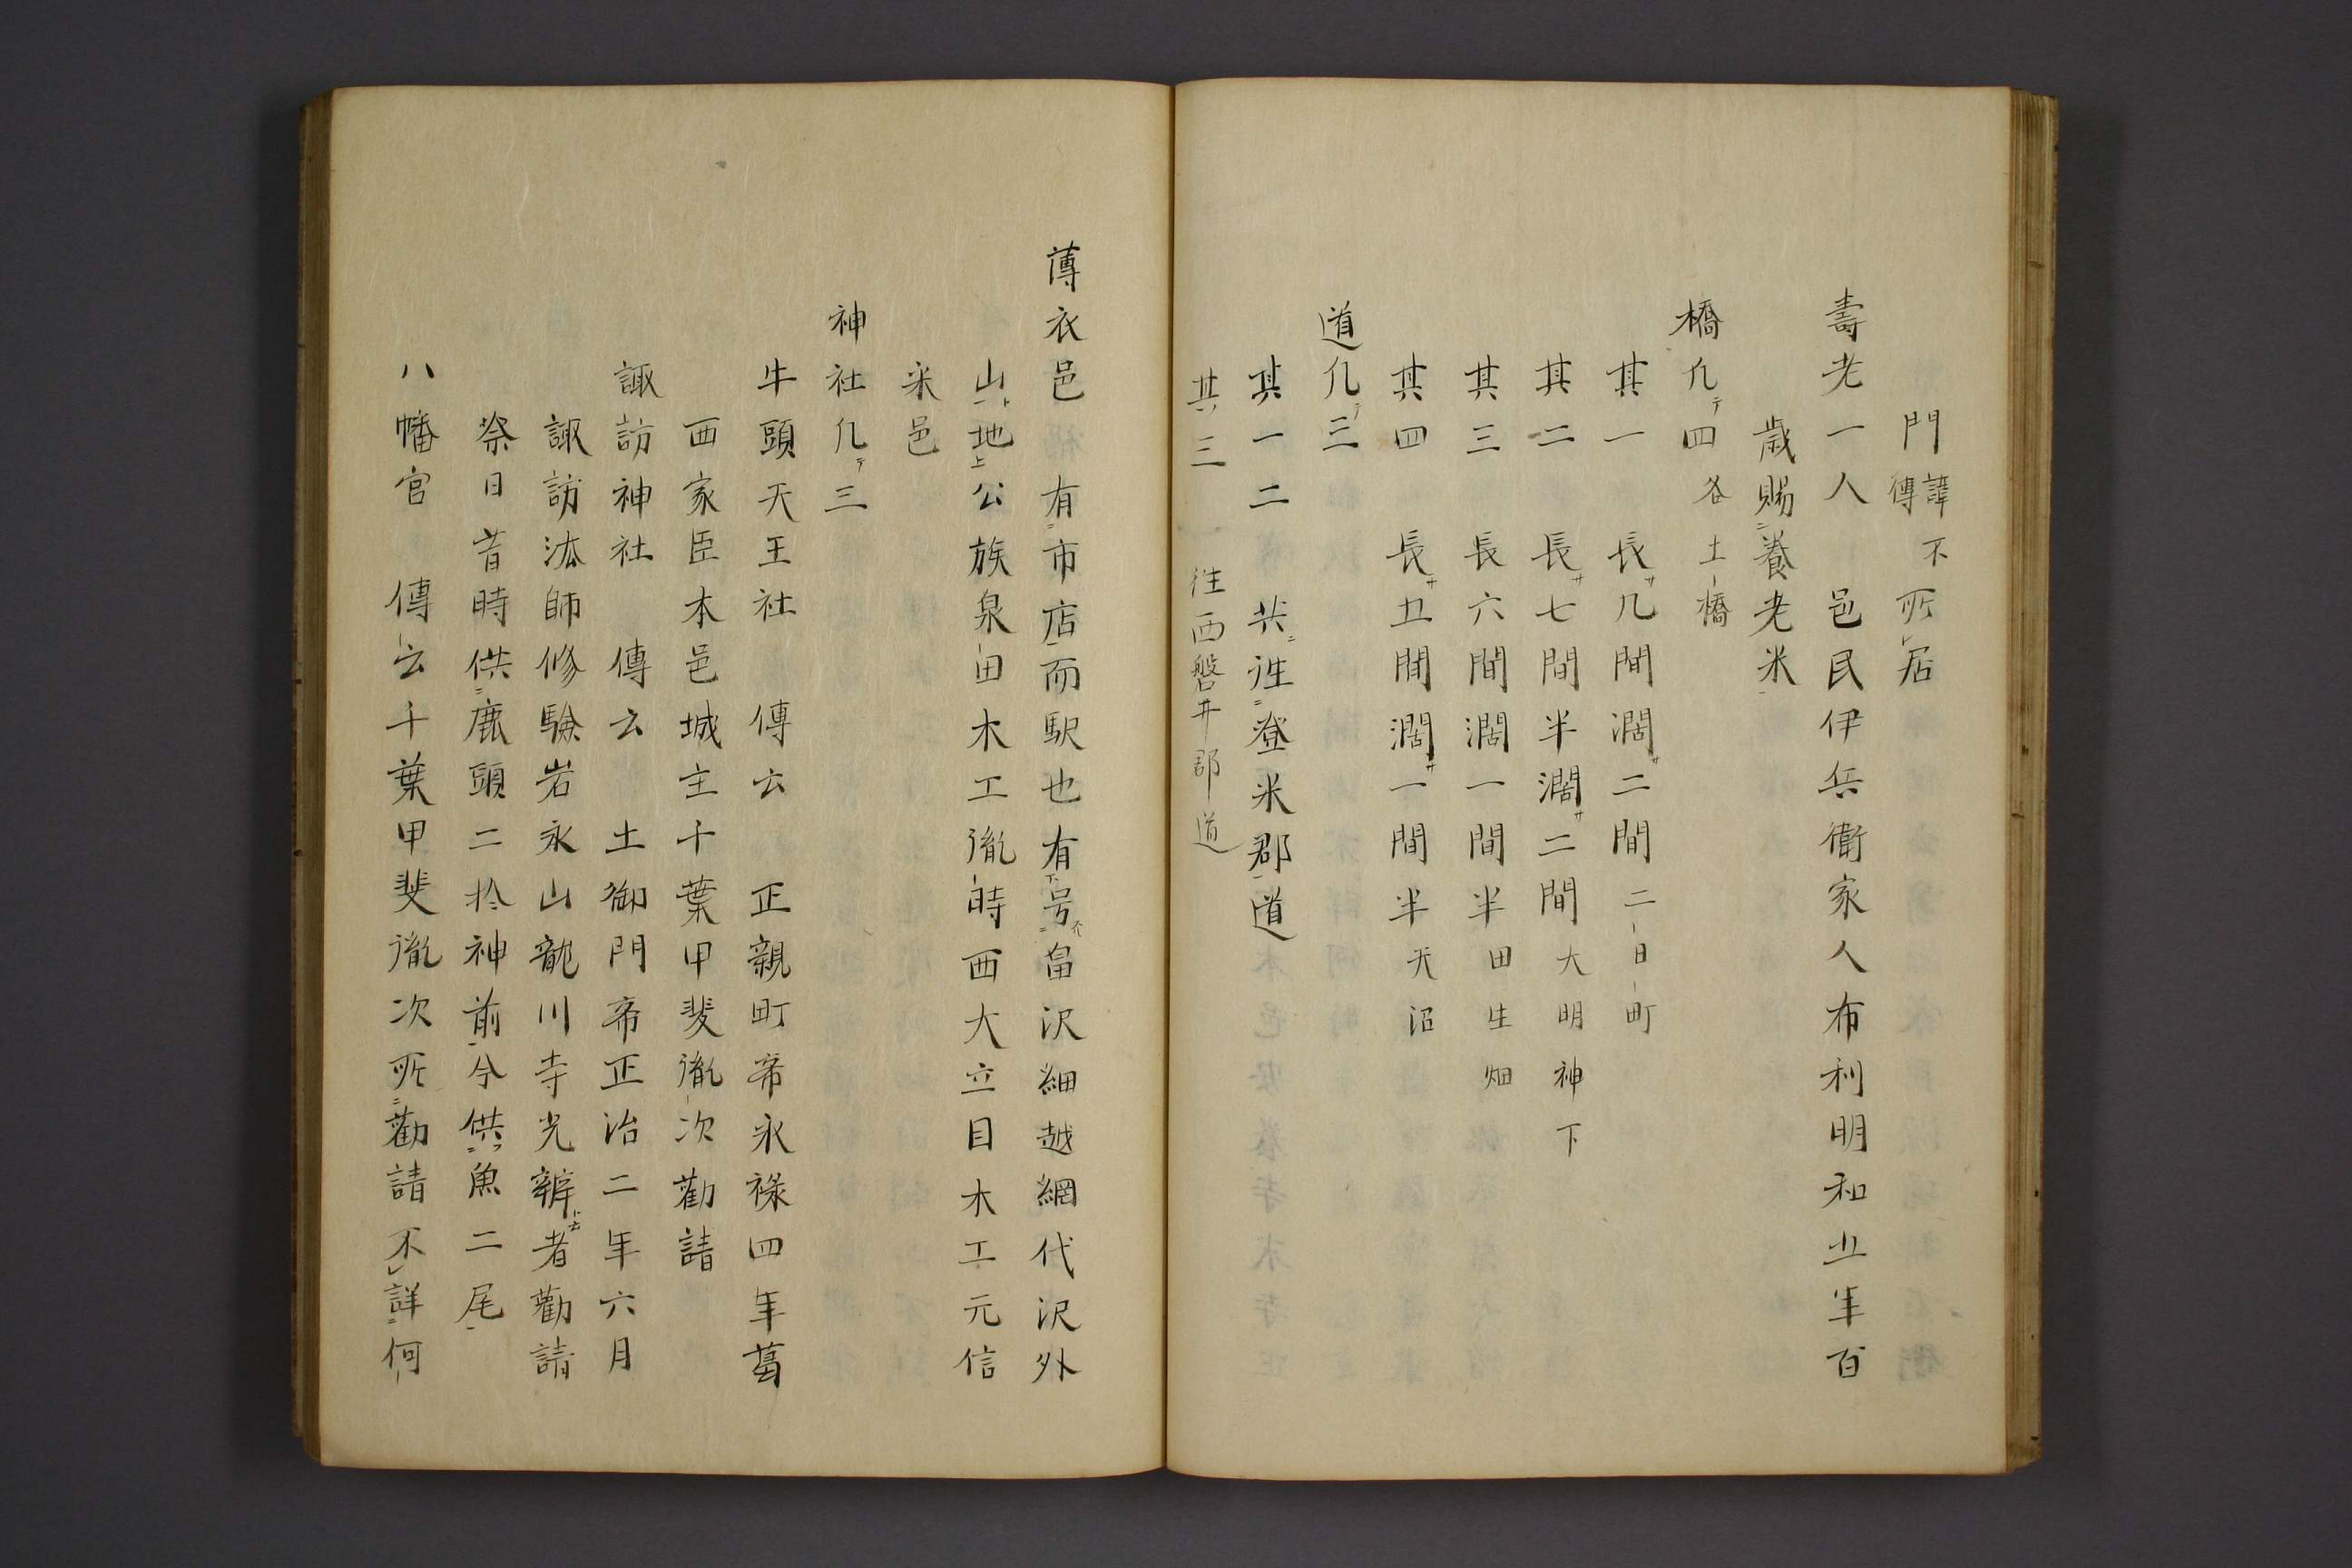 門 諱不
傳 所居
壽老一人 邑民伊兵衛家人布利明和五年百
歳賜養老米
橋凡四 各土橋
其一 長サ几間濶サ二間 二日町
其二 長サ七間半濶サ二間 大明神下
其三 長六間濶一間半 田生畑
其四 長サ五間濶サ一間半 天沼
道凡三
其一二 共往登米郡道
其三 往西磐井郡道
薄衣邑 有市店而駅也有号畠沢細越網代沢外
山地公族泉田木工胤時西大立目木工元信
采邑
神社凡三
牛頭天王社 傳云 正親町帝永禄四年葛
西家臣本邑城主千葉甲斐胤次勸請
諏訪神社 傳云 土御門帝正治二年六月
諏訪法師修驗岩永山龍川寺光辨者勸請
祭日昔時供鹿頭二於神前今供魚二尾
八幡宮 傳云千葉甲斐胤次所勸請不詳何